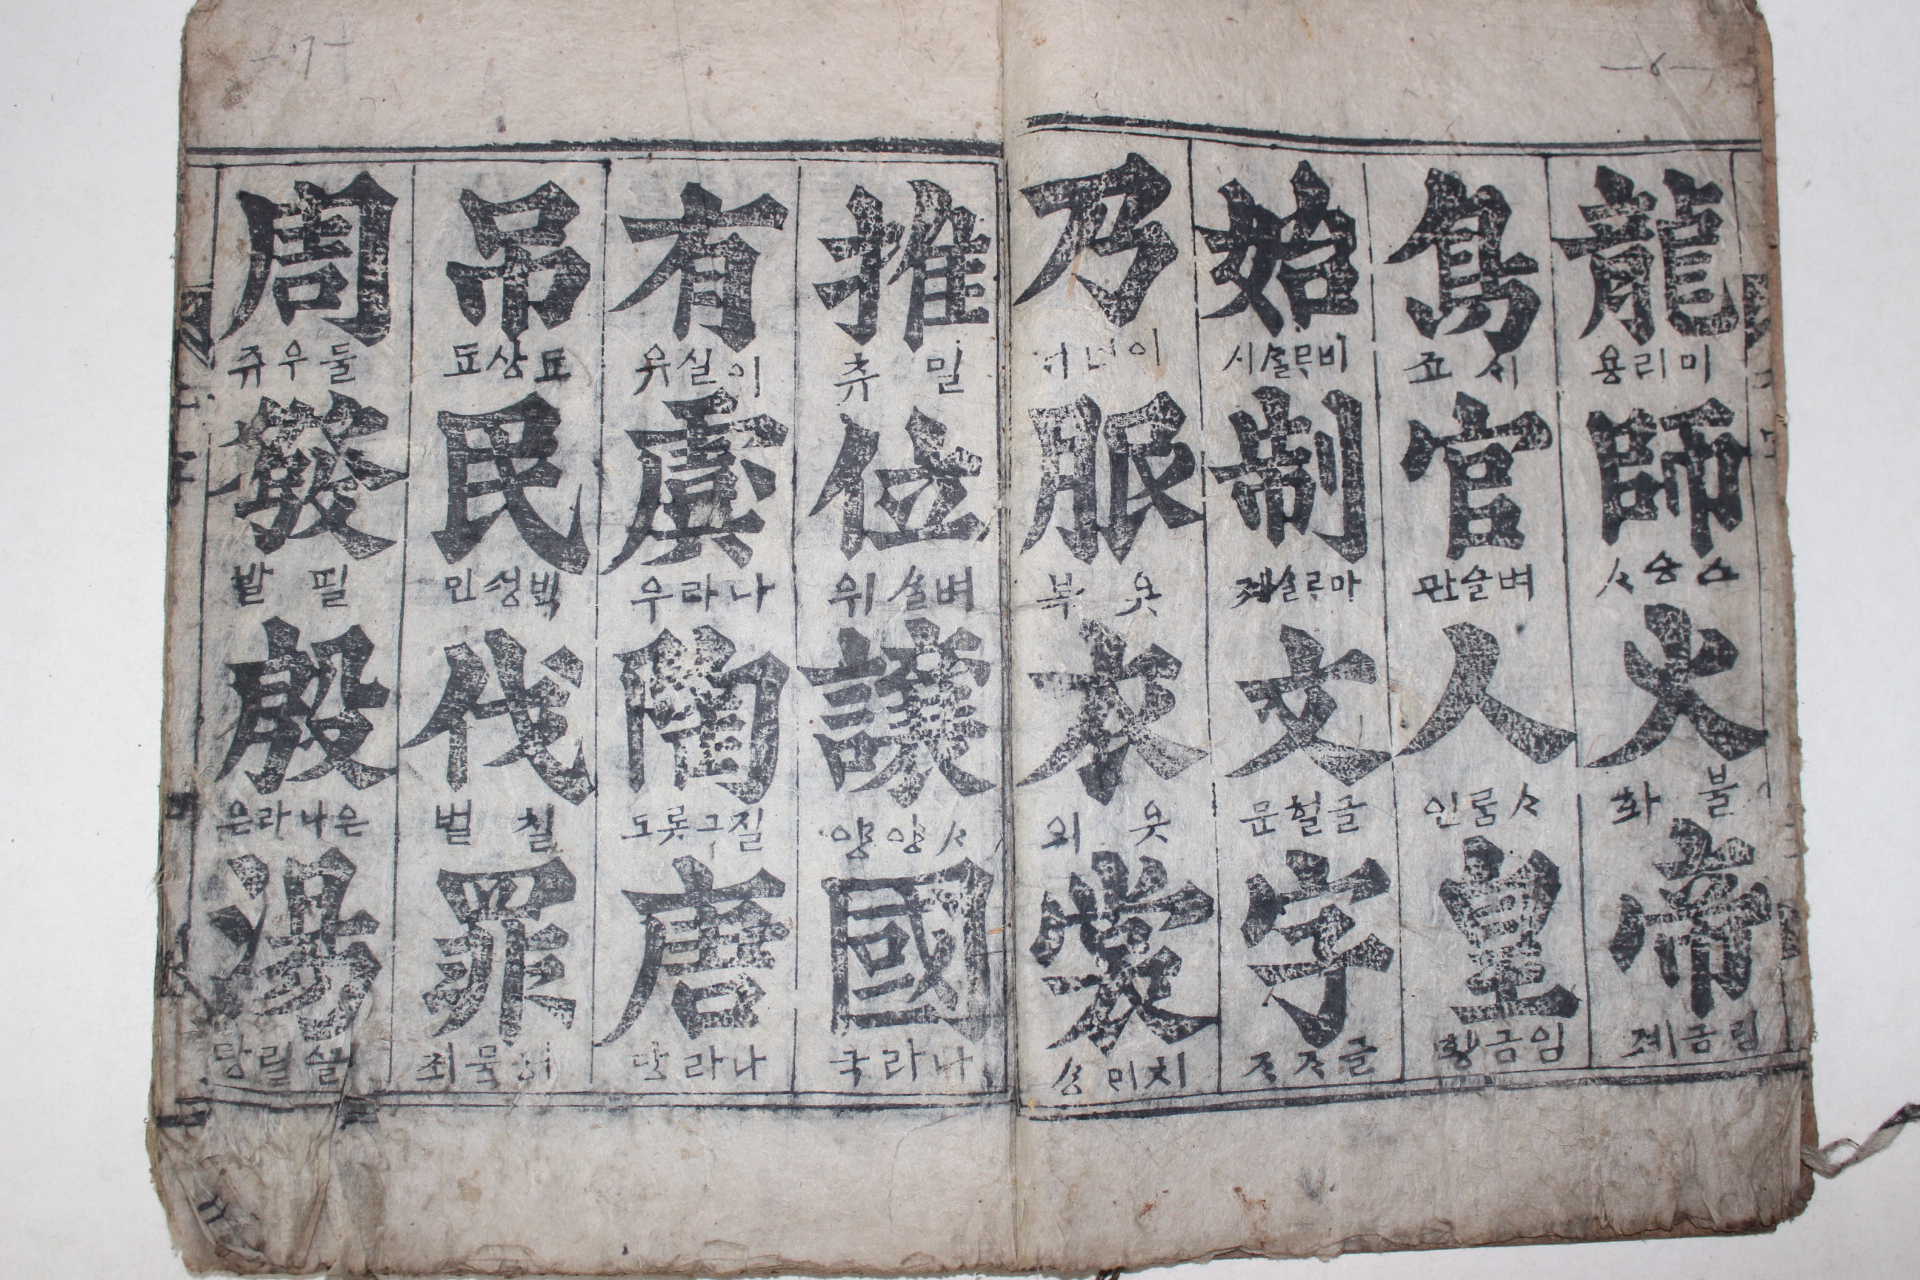 龍 미리용 師 스승ᄉᆞ 火 불화 帝 림금졔
鳥 ᄉᆡ죠 官 벼슬관 人 ᄉᆞ룸인 皇 임금황
始 비르슬시 制 마르슬졔 文 글헐문 字 글ᄌᆞᄌᆞ
乃 服 옷복 衣 옷의 裳 치미
推 밀츄 位 벼슬위 讓 ᄉᆞ양양 國 나라국
有 이실유 虞 나라우 陶 질그릇도 唐 나라당
吊 됴상됴 民 백성민 伐 칠벌 罪 허물죄
周 둘우쥬 發 필발 殷 은나라은 湯